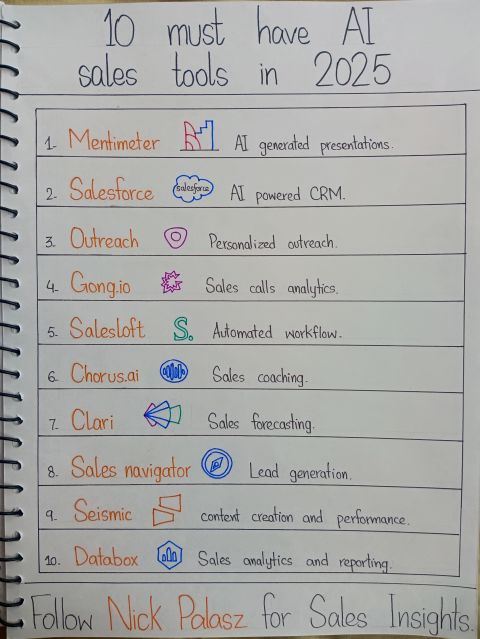 10 must have AI
sales tools in 2025
1. Mentimeter AI generated presentations.
2. Salesforce salesforce AI powered CRM.
3. Outreach Personalized outreach.
4. Gong.io Sales calls analytics.
5. Salesloft S. Automated workflow.
6. Chorus.ai Sales coaching.
7. Clari Sales forecasting.
8. Sales navigator Lead generation.
9. Seismic content creation and performance.
10. Databox Sales analytics and reporting.
Follow Nick Palasz for Sales Insights.